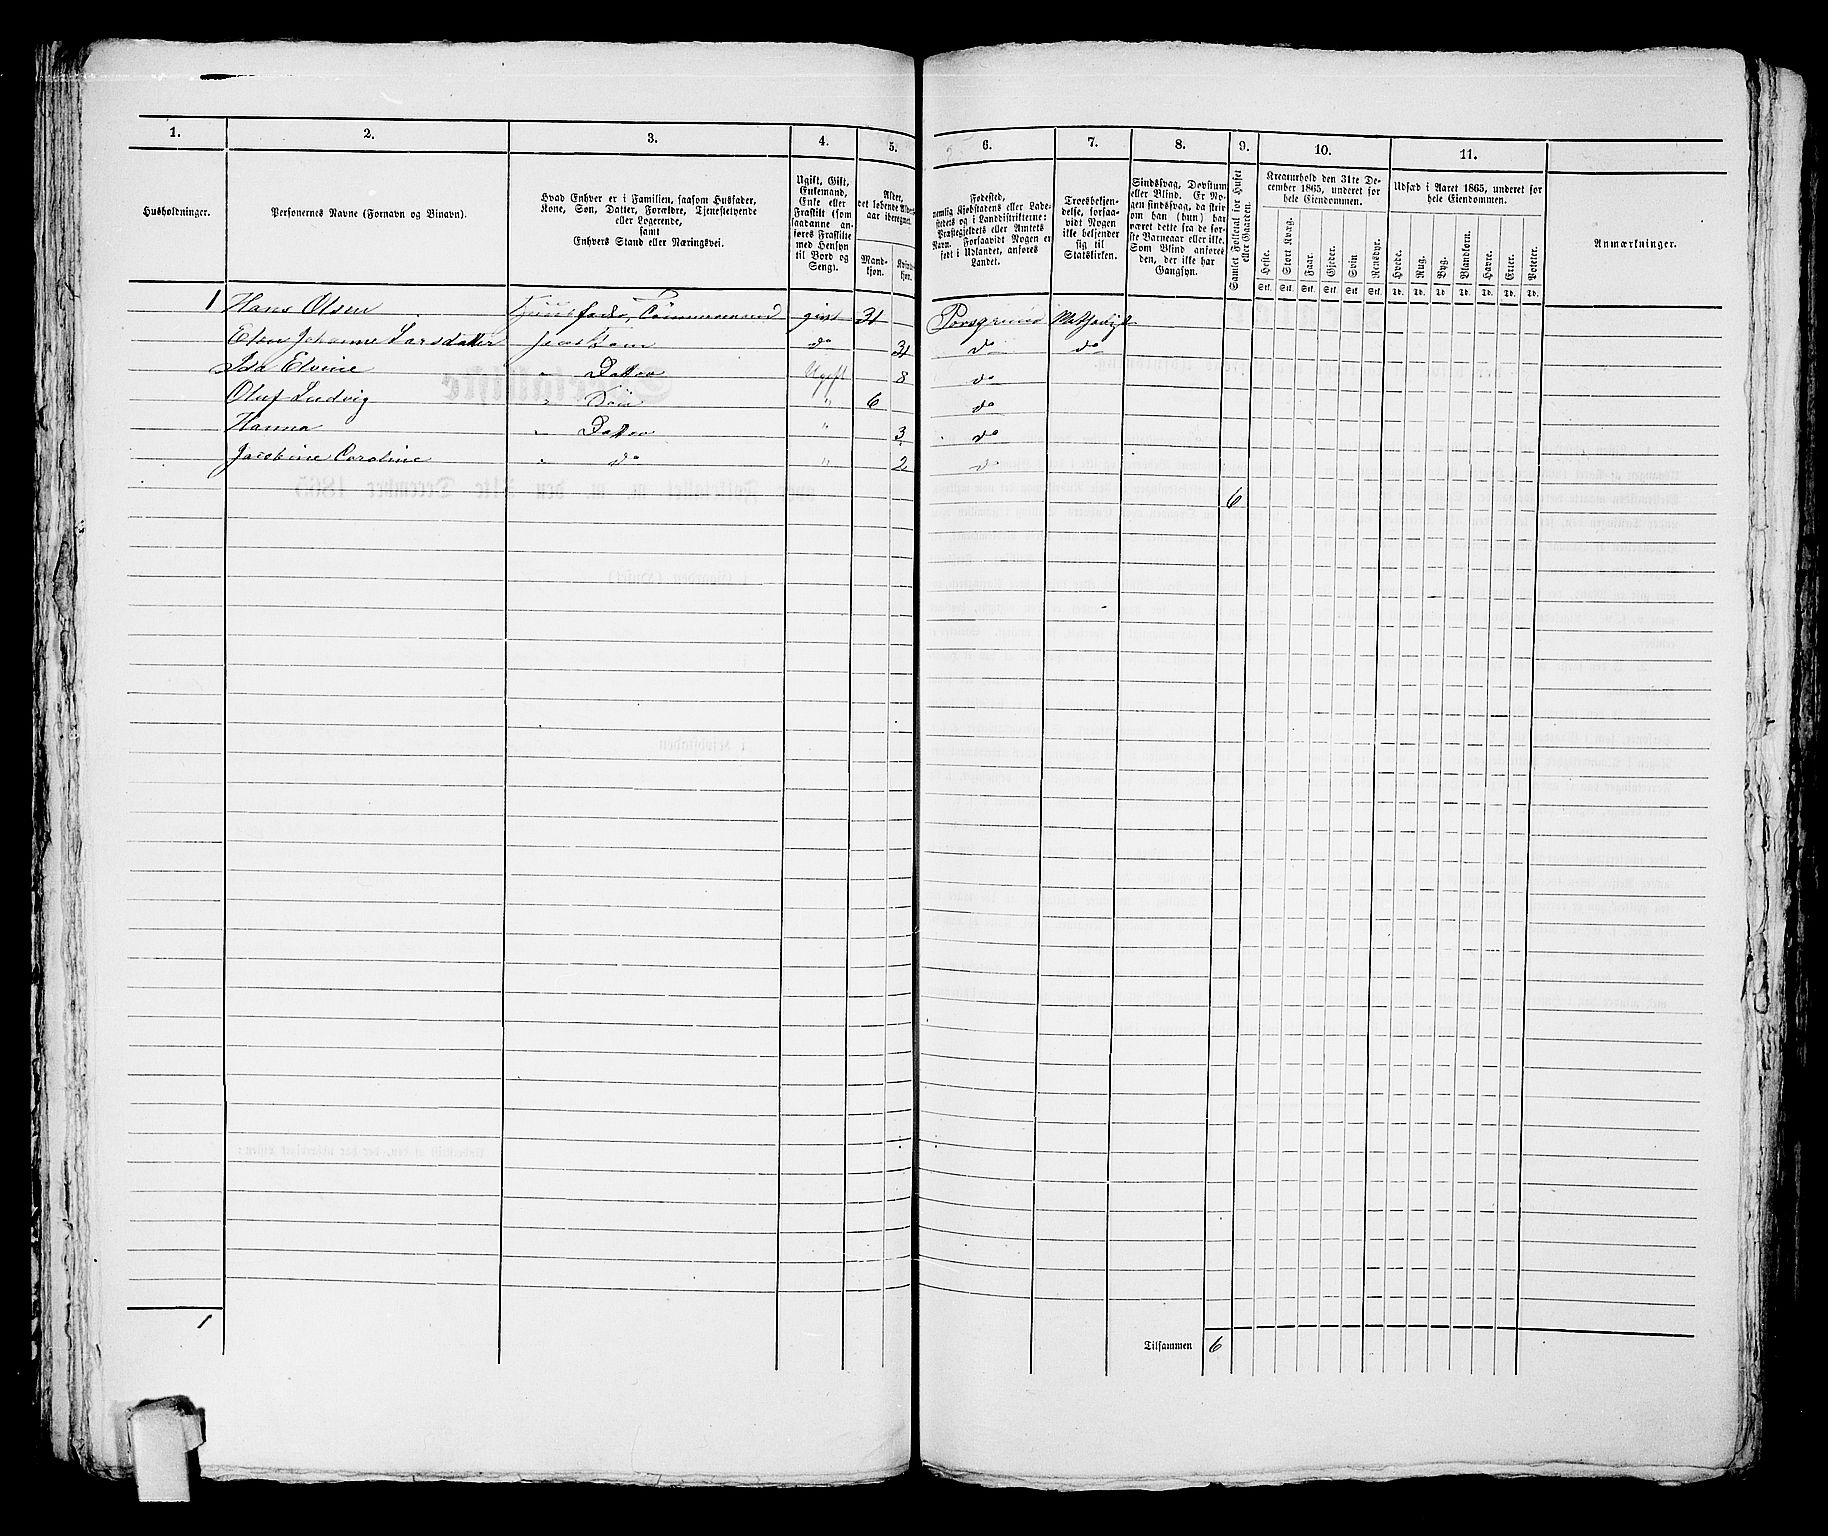 1. 2. 3. 4. 5. 6. 7. 8. 9. 10. 11.
Husholdninger.
Personernes Navne (Fornavn og Binavn).
Hvad Enhver er i Familien, saasom Husfader,
Kone, Søn, Datter, Forældre, Tjenestetyende
eller Logerende,
samt
Enhvers Stand eller Næringsvei.
Ugift, Gift,
Enkemand,
Enke eller
Fraskilt (som
saadanne an-
føres Fraskilte
med Hensyn
til Bord og
Seng).
Alder,
det løbende Alders-
aar iberegnet.
Mand-
kjøn.
Kvinde-
kjøn.
Fødested,
nemlig Kjøbstadens eller Lade-
stedets og i Landdistrikterne:
Præstegjeldets eller Amtets
Navn. Forsaavidt Nogen er
født i Udlandet, anføres
Landet.
Troesbekjen-
delse, forsaa-
vidt Nogen
ikke bekjender
sig til
Statskirken.
Sindssvag, Døvstum
eller Blind. Er No-
gen sindssvag, da skriv
om han (hun) har
været dette fra de før-
ste Barneaar eller ikke.
Som Blind anføres
den, der ikke har
Gangsyn.
Samlet Folketal for Huset
eller Gaarden.
Kreaturhold den 31te De-
cember 1865, underet for
hele Eiendommen.
Heste. Stort Kvæg. Faar. Gjeder. Svin Rensdyr.
Stk. Stk. Stk. Stk. Stk. Stk.
Udsæd i Aaret 1865, underet for
hele Eiendommen.
Hvede. Rug. Byg. Blandkorn. Havre. Erter. Poteter.
Td. Td. Td. Td. Td. Td. Td.
Anmærkninger.
1 Hans Olsen Huusfader, Tømmermand givt 31 Porsgrund Methodist
Elen Johanne Larsdatter hans Kone do 31 do do
Ida Elvine " Datter Ugift 8 do
Oluf Ludvig " Søn " 6 do
Hanna " Datter " 3 do
Jacobine Caroline " do " 2 do
6
1
Tilsammen 6